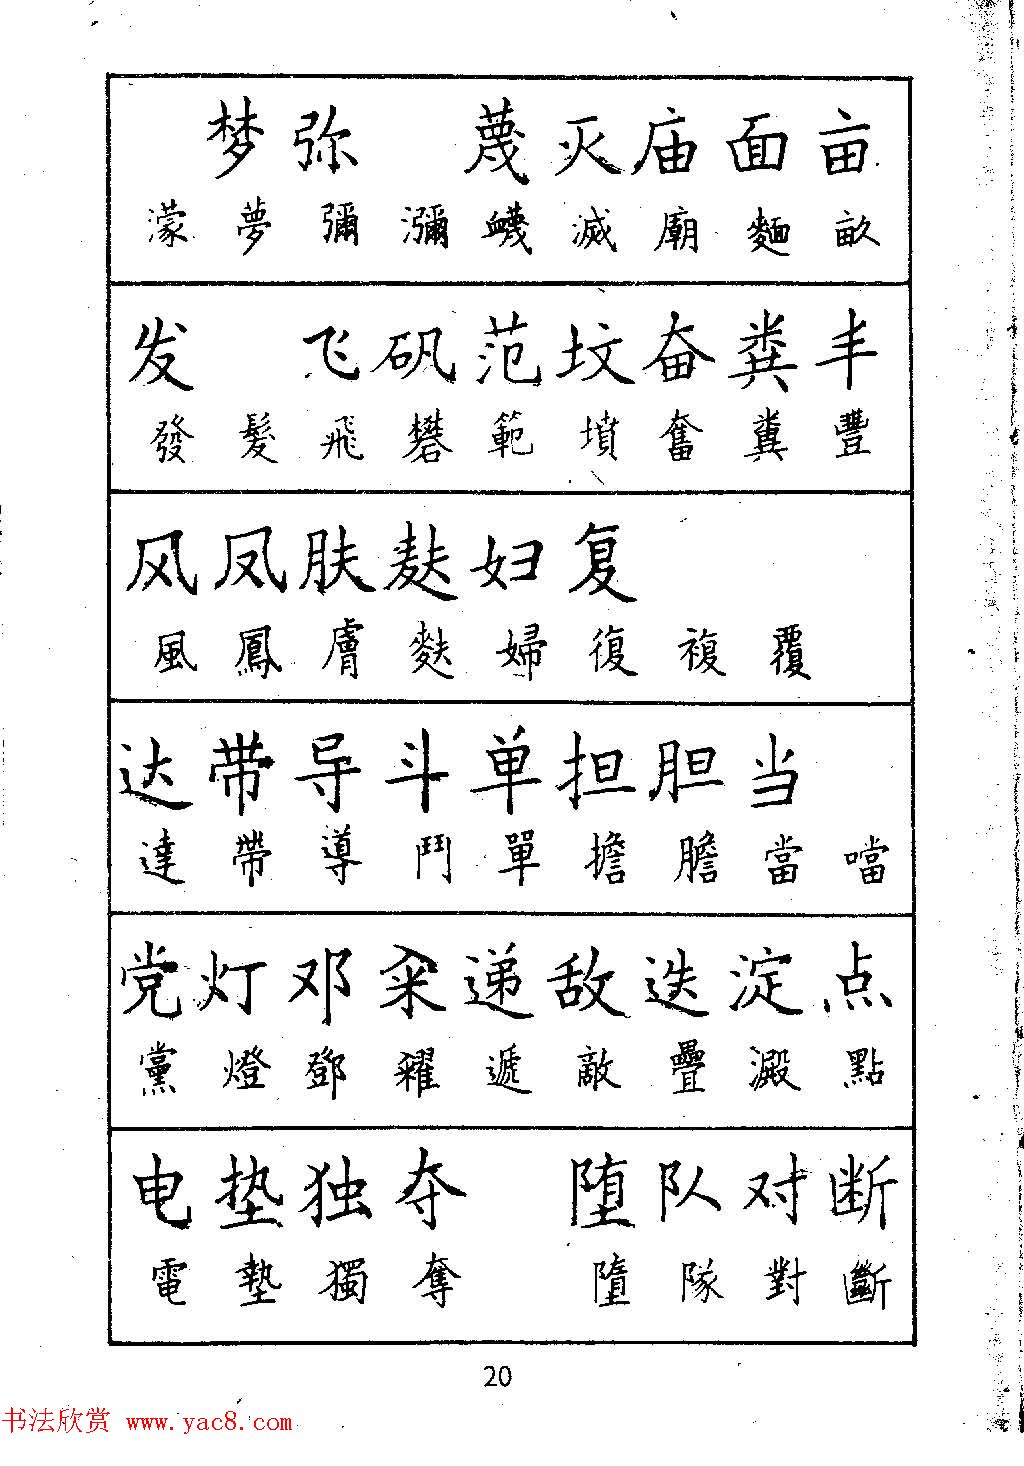 梦 弥 蔑 灭 庙 面 亩
濛 夢 彌 瀰 衊 滅 廟 麵 畝
发 飞 矾 范 坟 奋 粪 丰
發 髮 飛 礬 範 墳 奮 糞 豐
风 凤 肤 麸 妇 复
風 鳳 膚 麩 婦 復 複 覆
达 带 导 斗 单 担 胆 当
達 帶 導 鬥 單 擔 膽 當 噹
党 灯 邓 籴 递 敌 迭 淀 点
黨 燈 鄧 糴 遞 敵 疊 澱 點
电 垫 独 夺 堕 队 对 断
電 墊 獨 奪 墮 隊 對 斷
20
书法欣赏 www.yac8.com